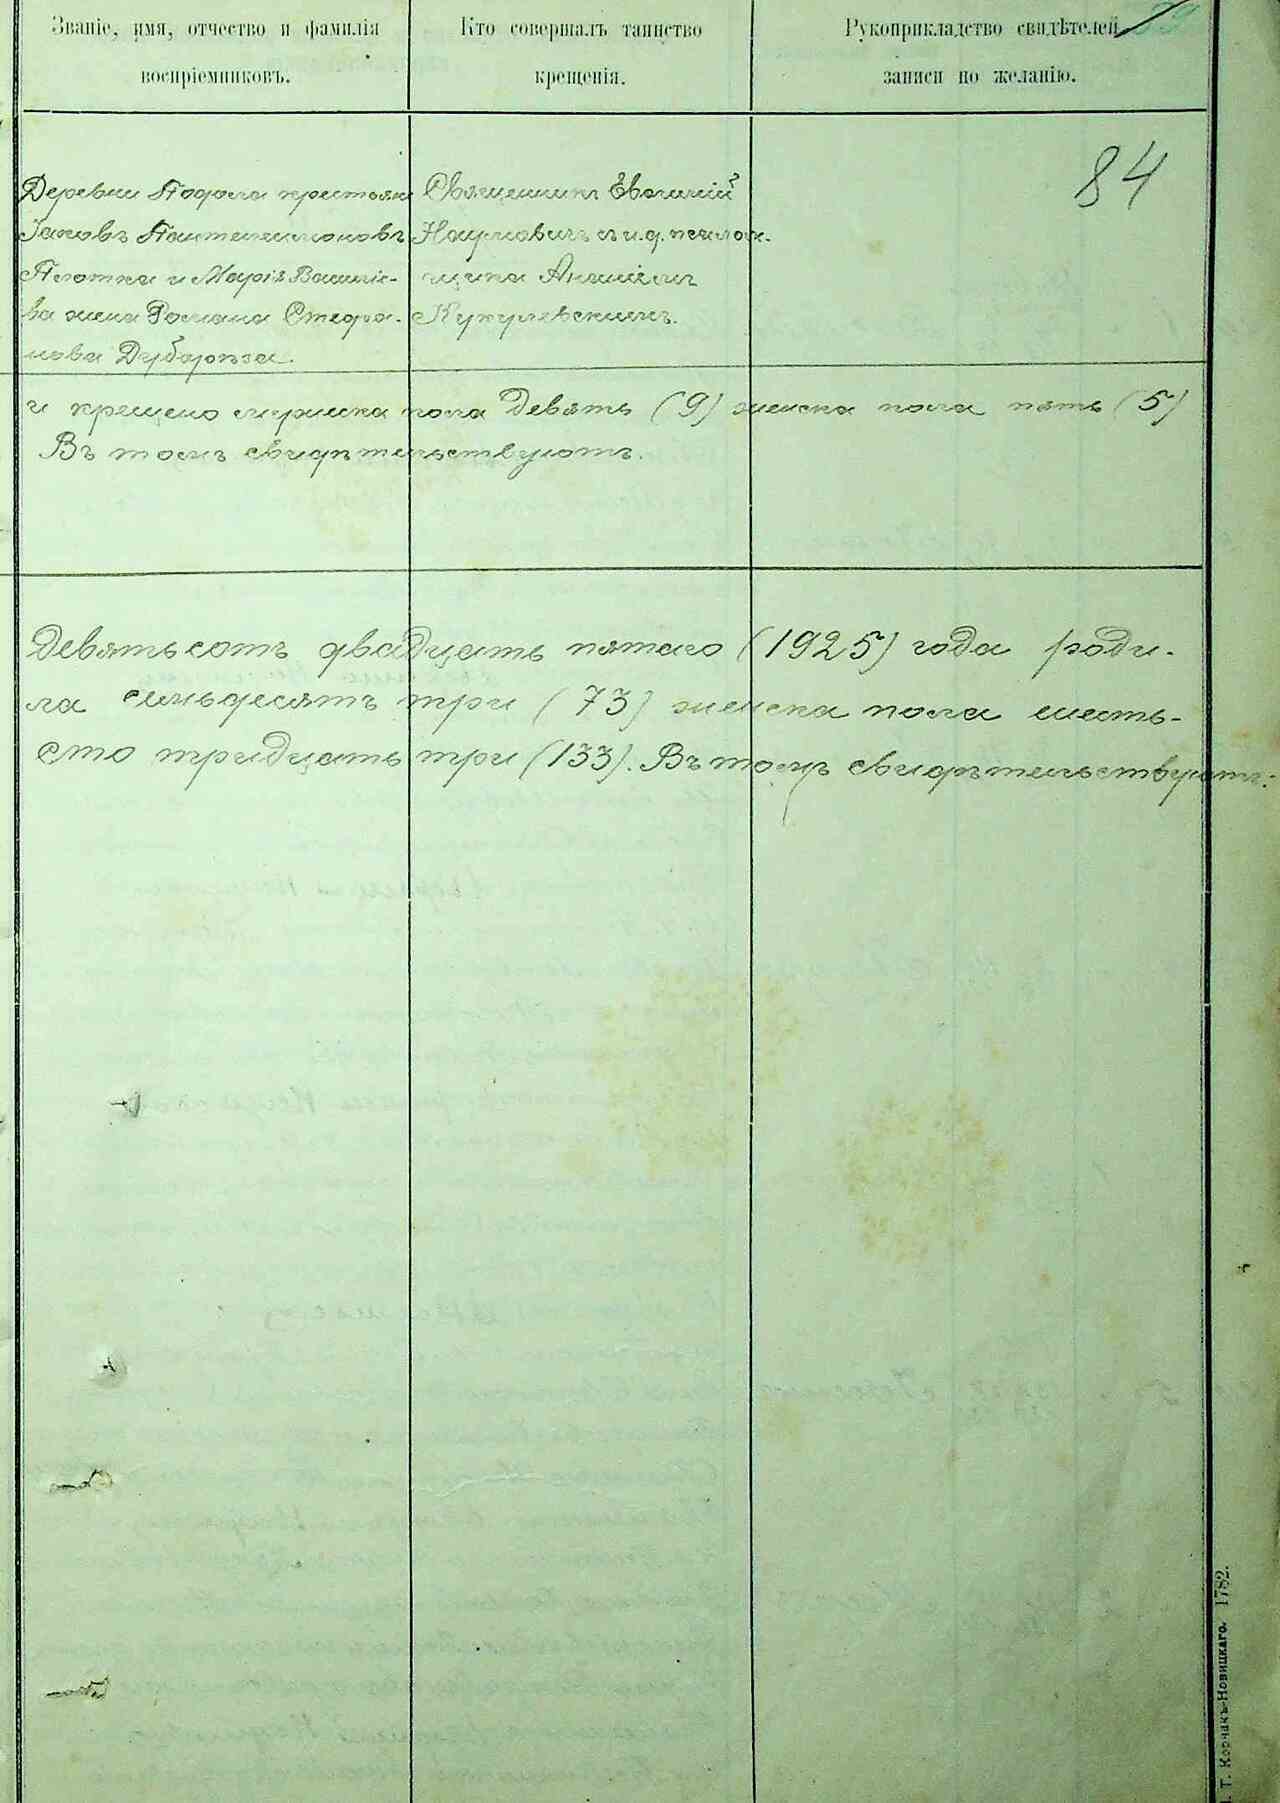 Званіе, имя, отчество и фамилія
воспріемниковъ.
Кто совершалъ таинство
крещенія.
Рукоприкладство свидѣтелей
записи по желанію.
84
Деревни Подола крестьяне
Іаковъ Пантелеимоновъ
Плотка и Марія Василіе-
ва жена Романа Стефа-
нова
Священникъ Евѳимій
Наумовичъ съ и.д. псалом-
щика
и крещено мужска пола Девять (9) женска пола пять (5)
Въ томъ свидѣтельствуютъ.
Девятьсотъ двадцать пятаго (1925) года роди-
ла семьдесятъ три (73) женска пола шесть-
сто тридцать три (133). Въ томъ свидѣтельствуютъ:
Т. Корчакъ-Новицкаго. 1782.